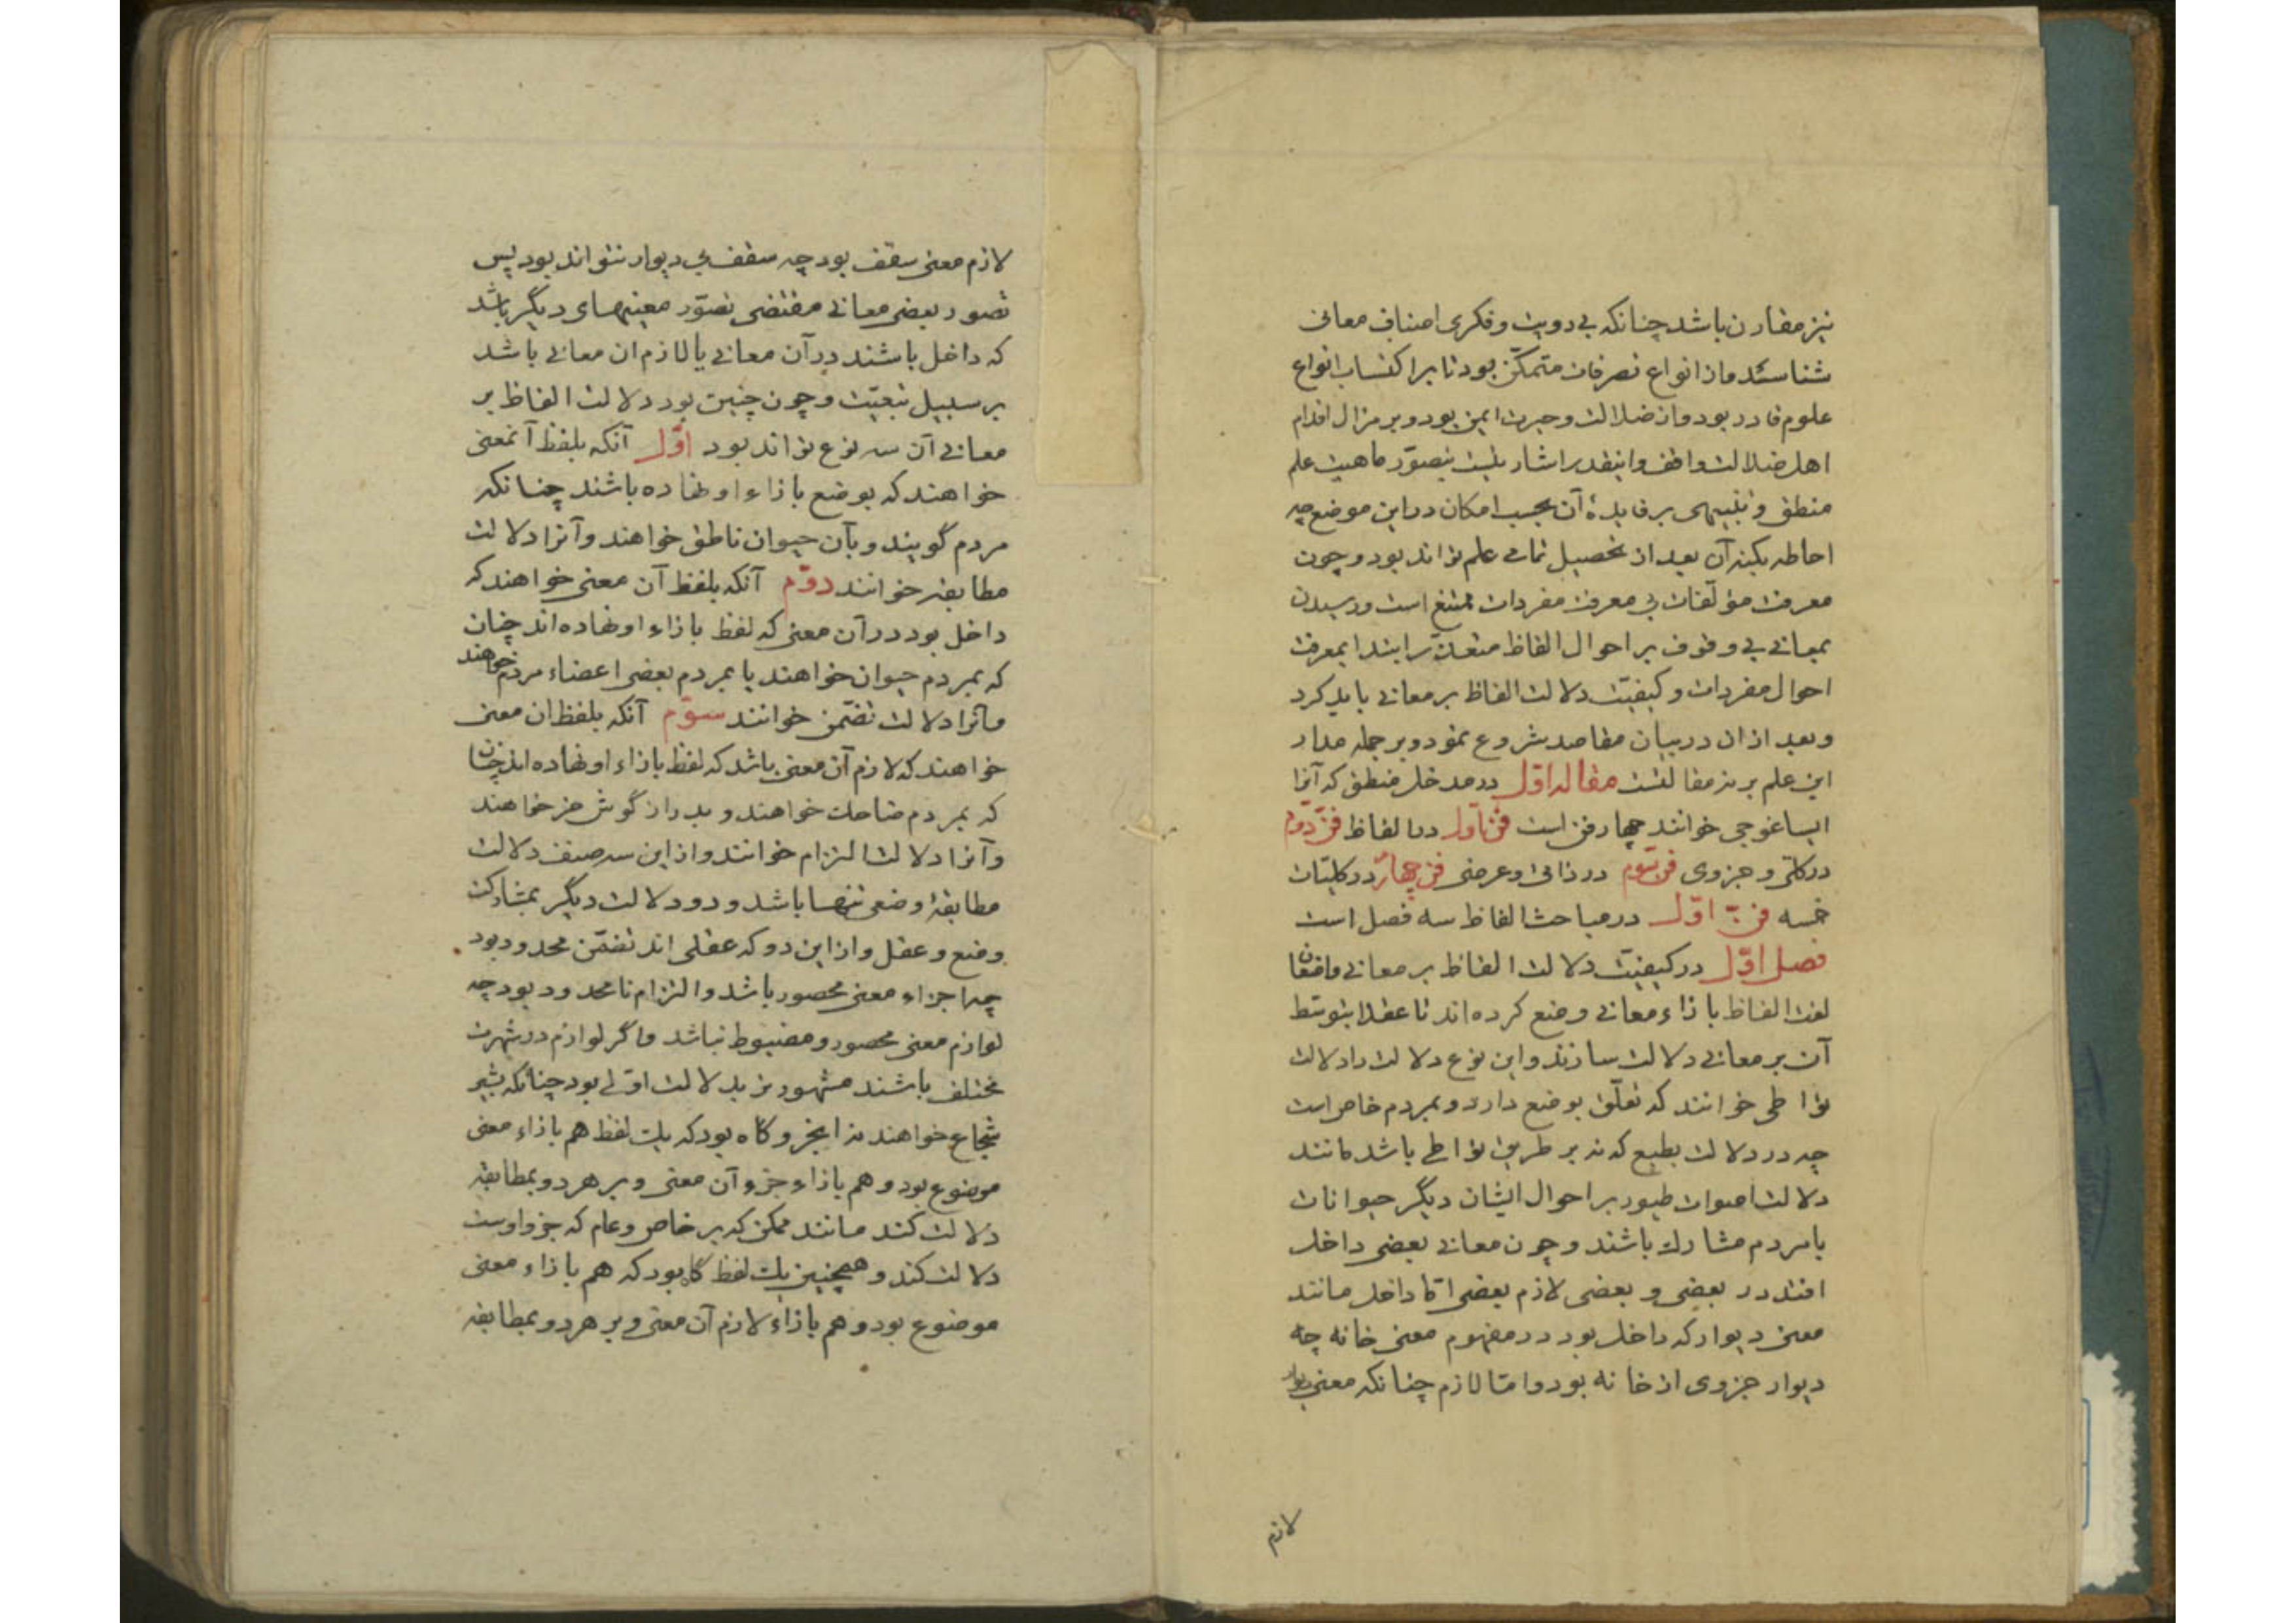 نیز مقارن باشد چنانکه بی رویت و فکری اصناف معانی
شناسد و از انواع تصرفات متمکن بود تا بر اکتساب انواع
علوم قادر بود و از ضلالت و حیرت ایمن بود و بر مزال اقدام
اهل ضلالت واقف و اینقدر اشارتیست بتصوّر ماهیت علم
منطق و تنبیهی بر فایدهٔ آن بحسب امکان در این موضع چه
احاطه بکنه آن بعد از تحصیل تمامی علم تواند بود و چون
معرفت مؤلفات بی معرفت مفردات ممتنع است و رسیدن
بمعانی بی وقوف بر احوال الفاظ متعذّر ابتدا بمعرفت
احوال مفردات و کیفیّت دلالت الفاظ بر معانی باید کرد
و بعد ازان در بیان مقاصد شروع نمود و بر جمله مدار
این علم بر نه مقالتست مقاله اوّل در مدخل منطق که آنرا
ایساغوجی خوانند چهار فن است فنّ اوّل در الفاظ فنّ دوّم
در کلّی و جزوی فنّ سوّم در ذاتی و عرضی فن چهارم در کلیّات
خمسه فنّ اوّل در مباحث الفاظ سه فصل است
فصل اوّل در کیفیّت دلالت الفاظ بر معانی واضعان
لغت الفاظ بازاء معانی وضع کرده‌اند تا عقلا بتوسّط
آن بر معانی دلالت سازند و این نوع دلالت را دلالت
تواطی خوانند که تعلّق بوضع دارد و بمردم خاص است
چه در دلالت بطبع که نه بر طریق تواطی باشد مانند
دلالت اصوات طیور بر احوال ایشان دیگر حیوانات
با مردم مشارک باشند و چون معانی بعضی داخل
افتد در بعضی و بعضی لازم بعضی امّا داخل مانند
معنی دیوار که داخل بود در مفهوم معنی خانه چه
دیوار جزوی از خانه بود و امّا لازم چنانکه معنی دیوار
لازم
لازم معنی سقف بود چه سقف بی دیوار نتواند بود پس
تصور بعضی معانی مقتضی تصوّر معنیهای دیگر باشد
که داخل باشند در آن معانی یا لازم ان معانی باشد
بر سبیل تبعیّت و چون چنین بود دلالت الفاظ بر
معانی آن سه نوع تواند بود اوّل آنکه بلفظ آنمعنی
خواهند که بوضع بازاء او نهاده باشند چنانکه
مردم گویند و بآن حیوان ناطق خواهند و آنرا دلالت
مطابقه خوانند دوّم آنکه بلفظ آن معنی خواهند که
داخل بود در آن معنی که لفظ بازاء او نهاده‌اند چنان
که بمردم حیوان خواهند یا بمردم بعضی اعضاء مردم خواهند
و آنرا دلالت تضمّن خوانند سوّم آنکه بلفظ ان معنی
خواهند که لازم آن معنی باشد که لفظ بازاء او نهاده‌اند چنان
که بمردم ضاحک خواهند و بدراز گوش خر خواهند
و آنرا دلالت التزام خوانند و از این سه صنف دلالت
مطابقه وضعی تنها باشد و دو دلالت دیگر بمشارکت
وضع و عقل و از این دو که عقلی‌اند تضمّن محدود بود
چه اجزاء معنی محصور باشد و التزام نامحدود بود چه
لوازم معنی محصور و مضبوط نباشد و اگر لوازم در شهرت
مختلف باشند مشهورتر بدلالت اولی بود چنانکه بشیر
شجاع خواهند نه ابخر و گاه بود که یک لفظ هم بازاء معنی
موضوع بود و هم بازاء جزء آن معنی و بر هر دو بمطابقه
دلالت کند مانند ممکن که بر خاص و عام که جزو اوست
دلالت کند و همچنین یک لفظ گاه بود که هم بازاء معنی
موضوع بود و هم بازاء لازم آن معنی و بر هر دو بمطابقه